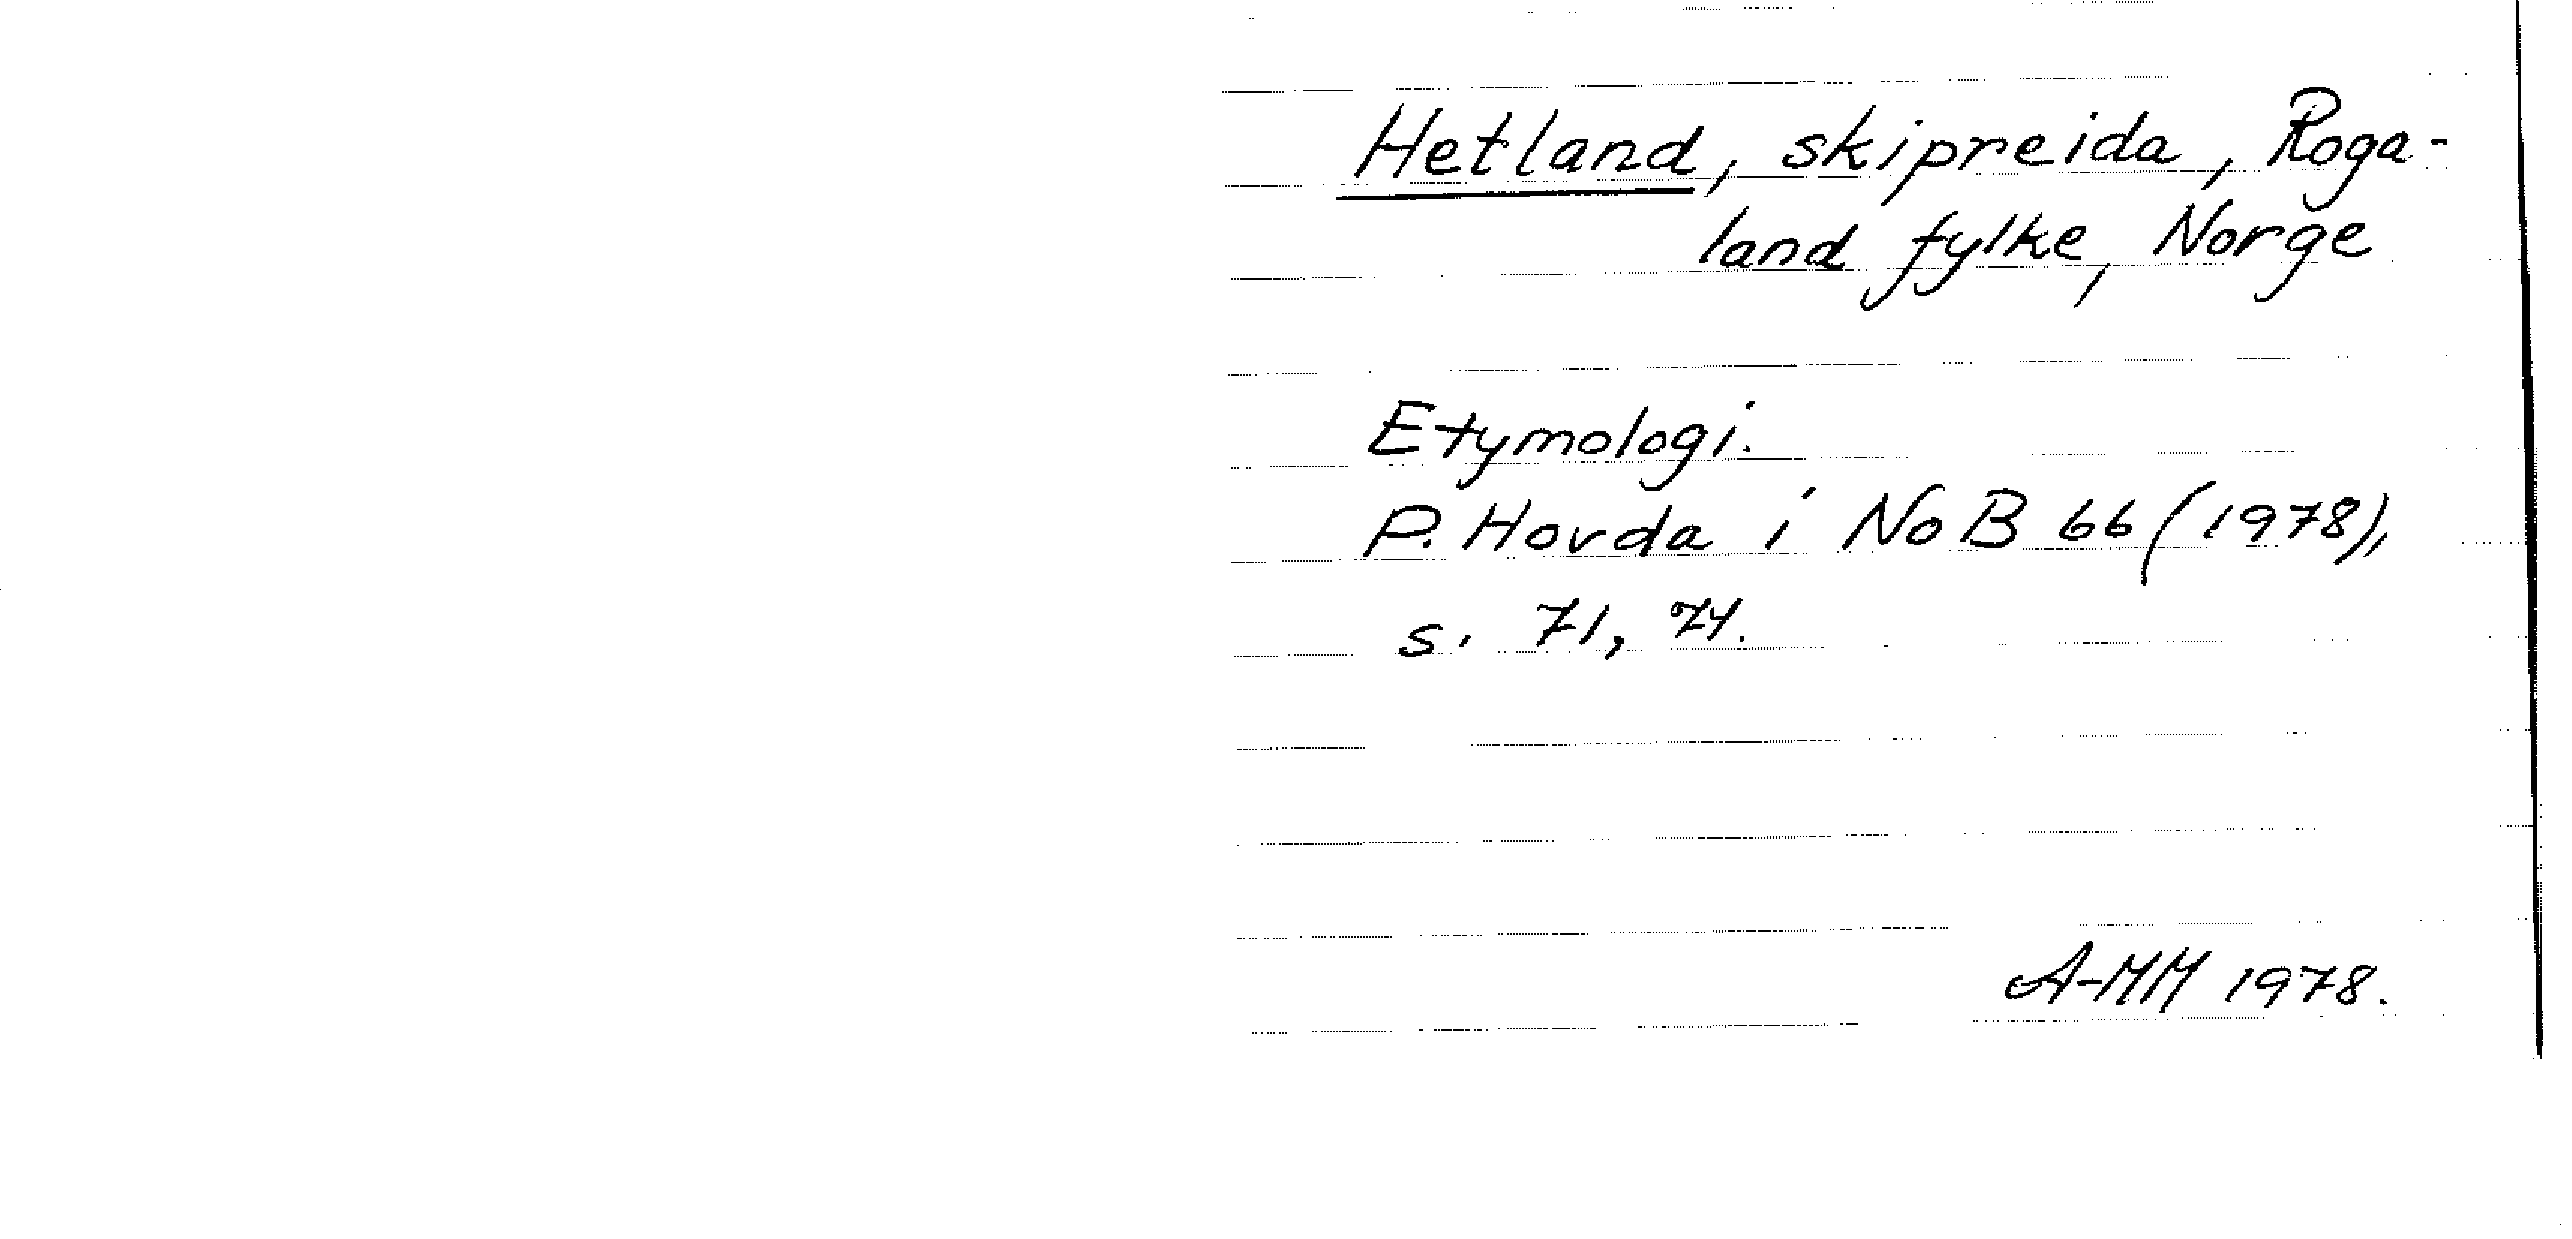 Hetland, skipreida, Roga-
land fylke, Norge
Etymologi.
P. Hovda i NoB 66 (1978),
s. 71, 74.
A-MM 1978.